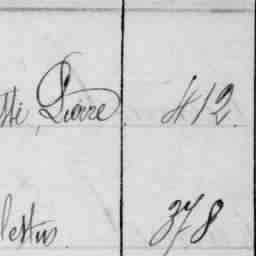 tti, Pierre. 412.
lettis. 378